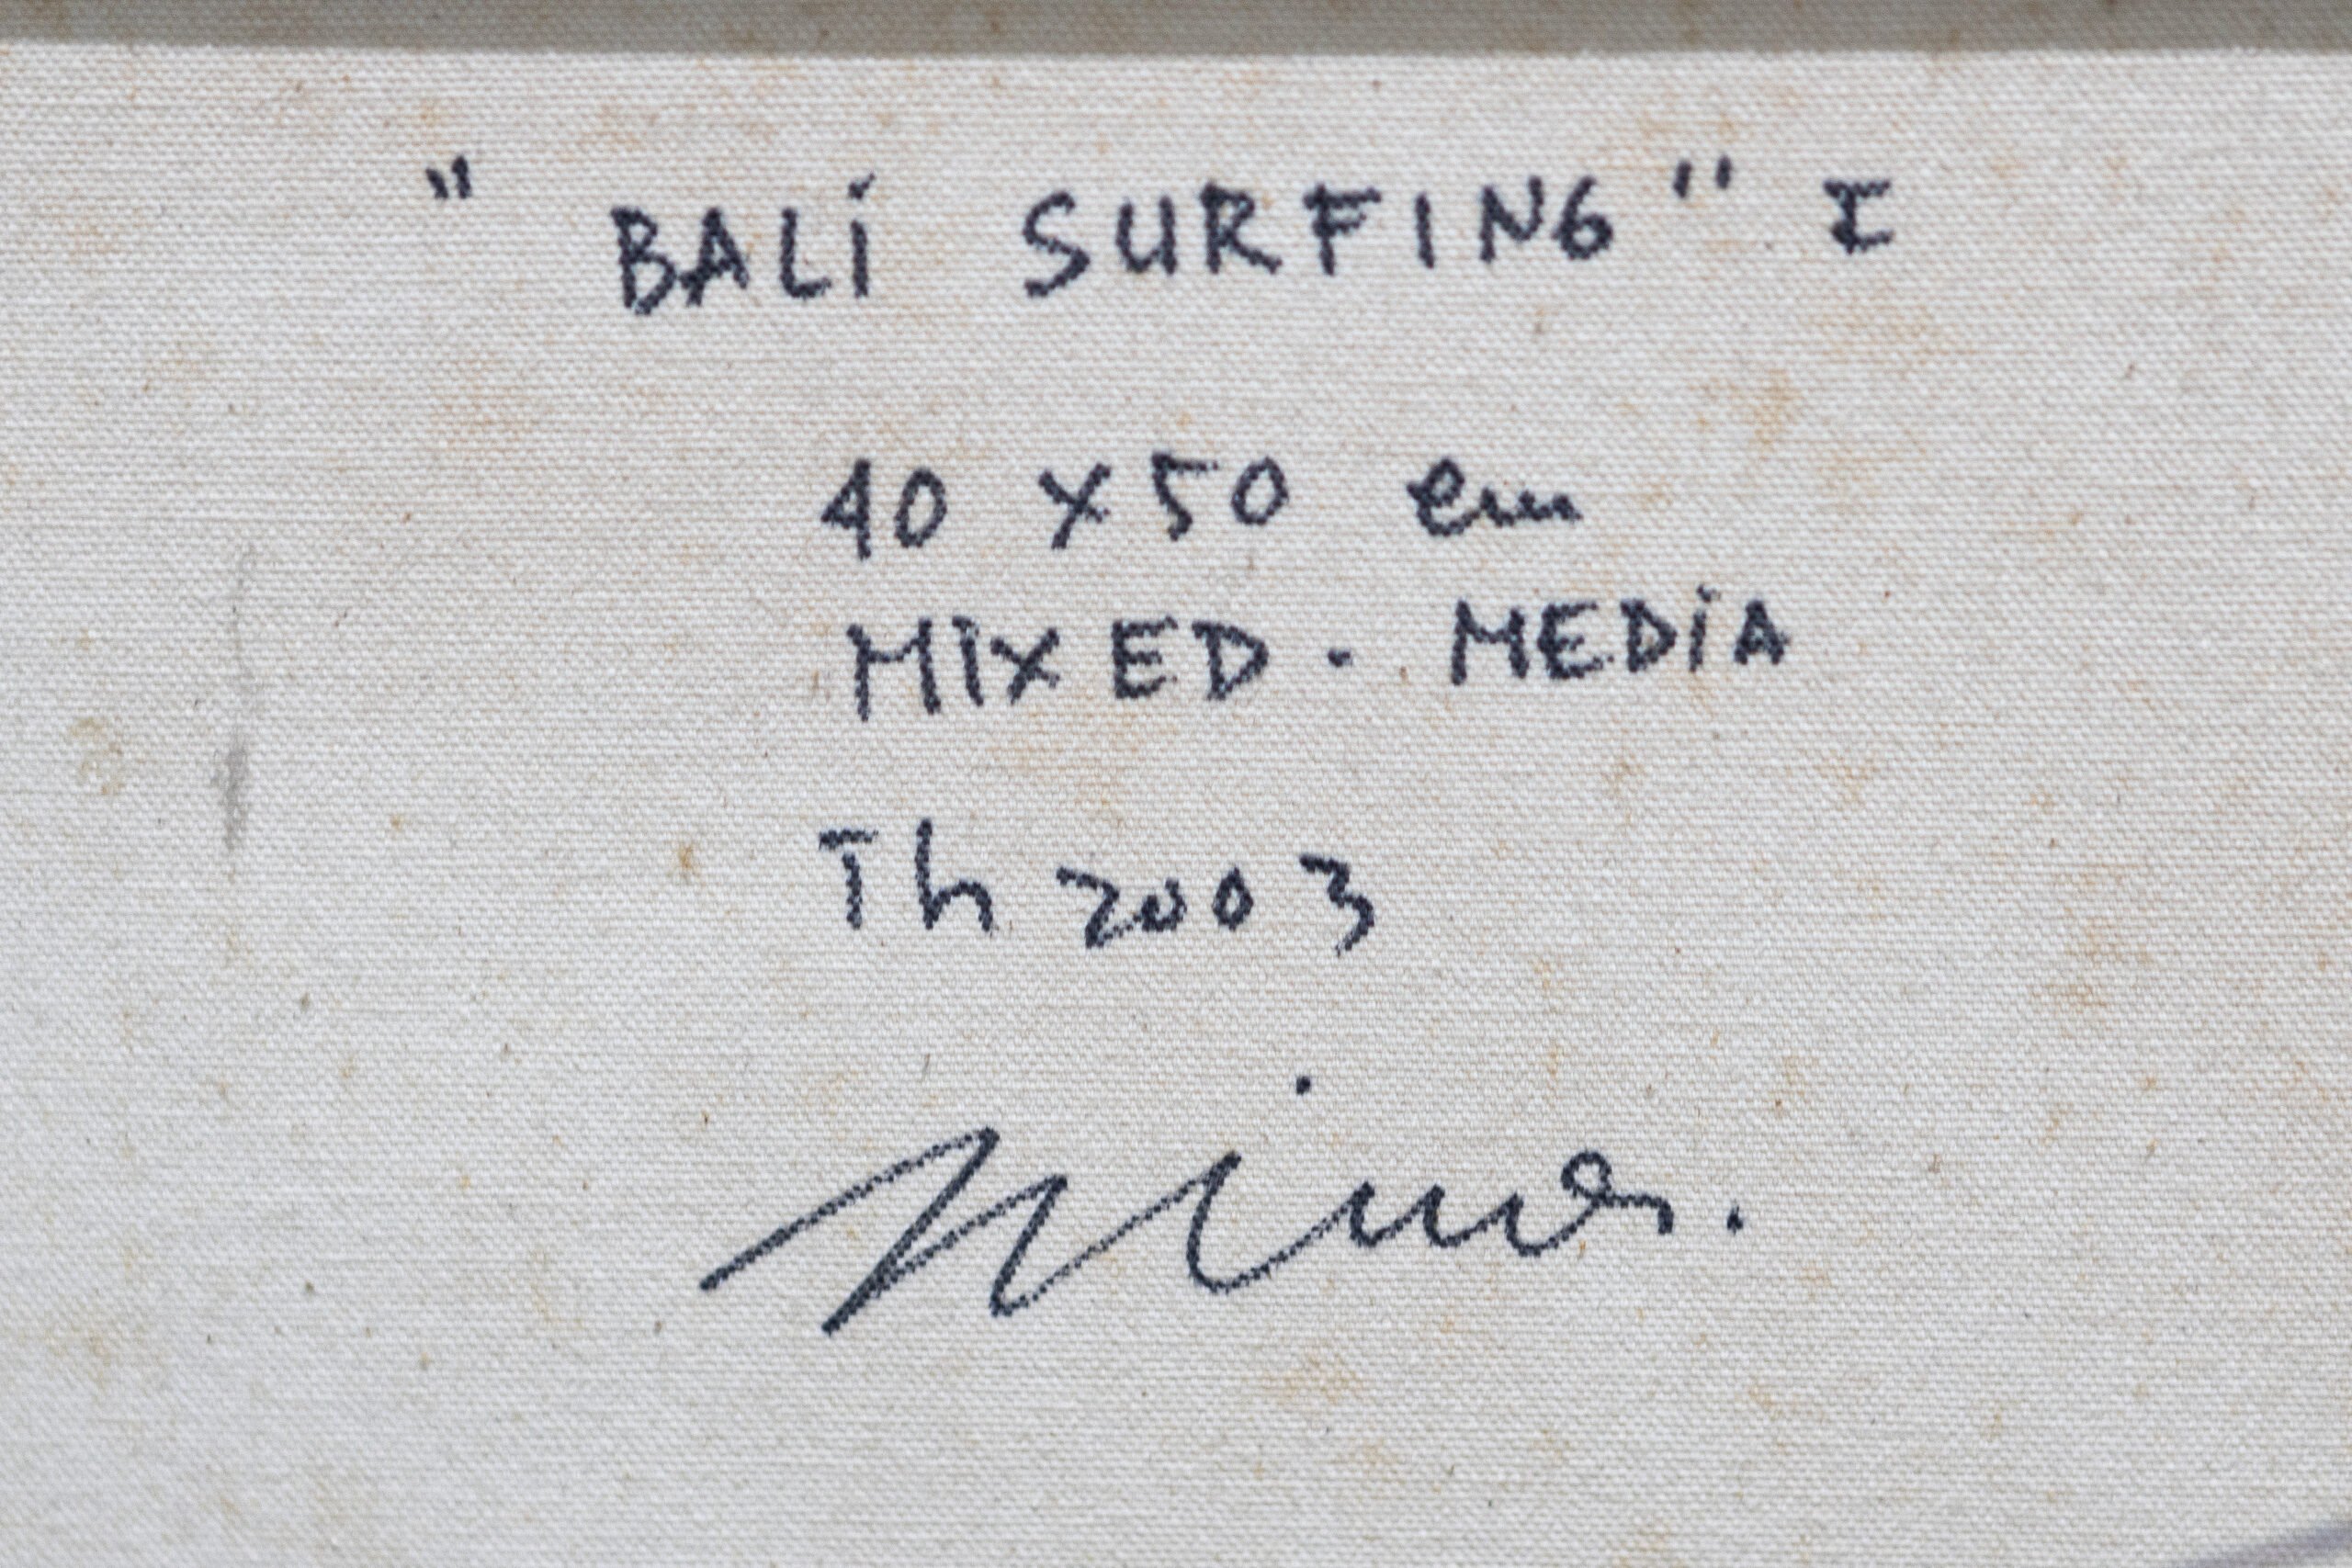 " BALi SURFING" I
40 X 50 cm
MIXED. MEDiA
Th 2003